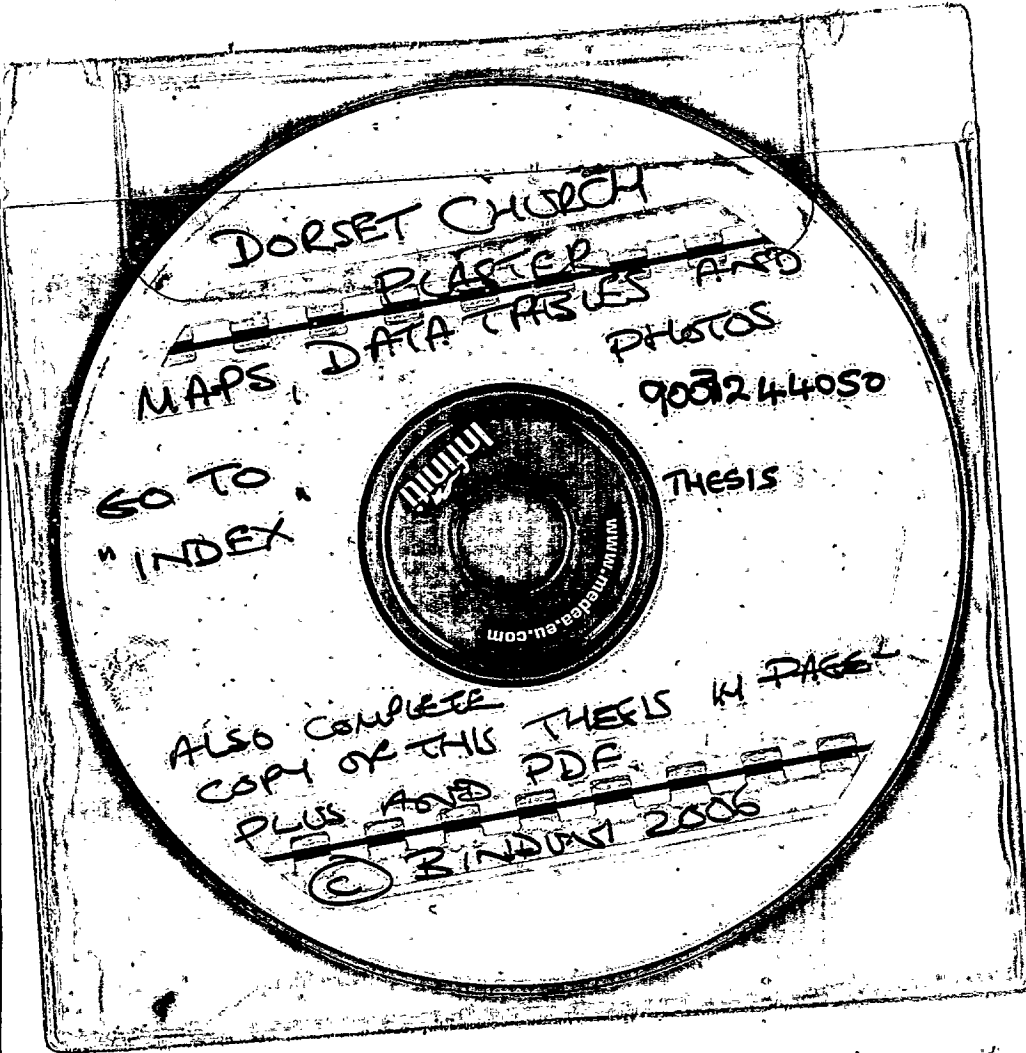 DORSET CHURCH
PLASTER
MAPS, DATA TABLES AND
PHOTOS
THESIS
GO TO
"INDEX"
Infiniti
www.medea.eu.com
ALSO COMPLETE
COPY OF THIS THESIS IN PAGE
PLUS AND PDF
© 2006